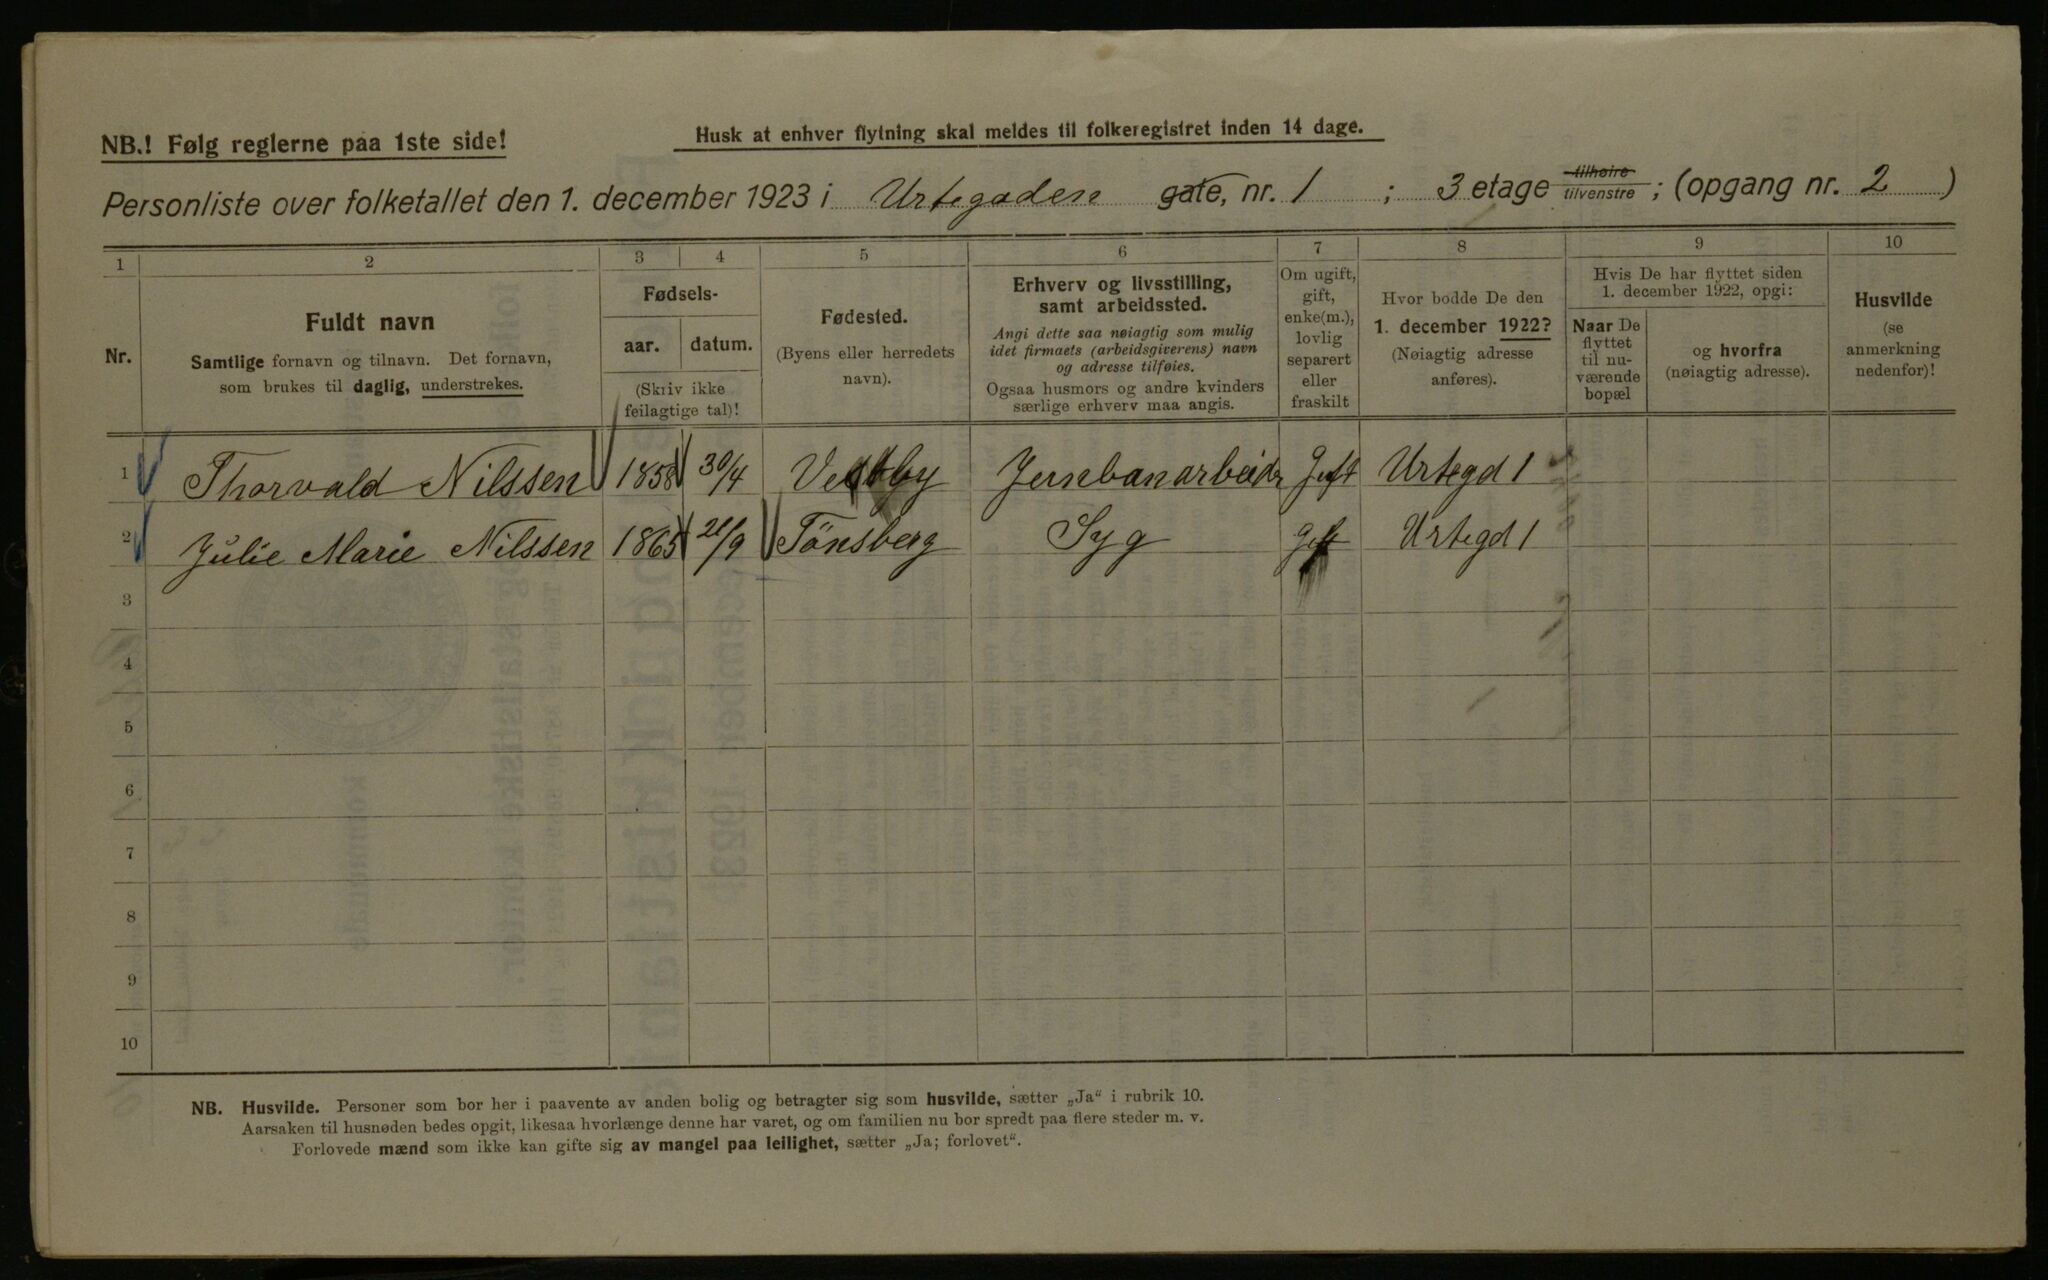 NB.! Følg reglerne paa 1ste side!
Husk at enhver flytning skal meldes til folkeregistret inden 14 dage.
Personliste over folketallet den 1. december 1923 i Urtegaden gate, nr. 1 ; 3 etage tilhøire tilvenstre ; (opgang nr. 2 )
1 2 3 4 5 6 7 8 9 10
Nr.
Fuldt navn
Samtlige fornavn og tilnavn. Det fornavn,
som brukes til daglig, understrekes.
Fødsels-
aar. datum.
(Skriv ikke
feilagtige tal)!
Fødested.
(Byens eller herredets
navn).
Erhverv og livsstilling,
samt arbeidssted.
Angi dette saa nøiagtig som mulig
idet firmaets (arbeidsgiverens) navn
og adresse tilføies.
Ogsaa husmors og andre kvinders
særlige erhverv maa angis.
Om ugift,
gift,
enke(m.),
lovlig
separert
eller
fraskilt
Hvor bodde De den
1. december 1922?
(Nøiagtig adresse
anføres).
Hvis De har flyttet siden
1. december 1922, opgi:
Naar De
flyttet
til nu-
værende
bopæl
og hvorfra
(nøiagtig adresse).
Husvilde
(se
anmerkning
nedenfor)!
1 Thorvald Nilssen 1858 30/4 Jernbanarbeider Gift Urtegd 1
2 Julie Marie Nilssen 1865 21/9 Tönsberg Syg Gift Urtegd 1
3
4
5
6
7
8
9
10
NB. Husvilde. Personer som bor her i paavente av anden bolig og betragter sig som husvilde, sætter „Ja“ i rubrik 10.
Aarsaken til husnøden bedes opgit, likesaa hvorlænge denne har varet, og om familien nu bor spredt paa flere steder m. v.
Forlovede mænd som ikke kan gifte sig av mangel paa leilighet, sætter „Ja; forlovet“.